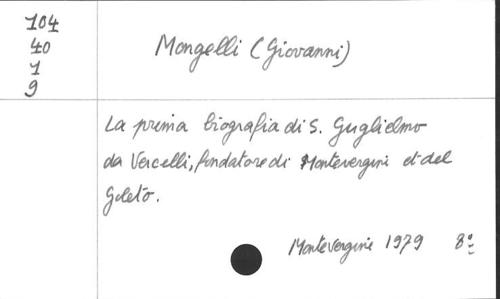 104
40
1
9
Mongelli (Giovanni)
La prima biografia di S. Guglielmo
da Vercelli, fondatore di Montevergine e del
Goleto.
Montevergine 1979 8º